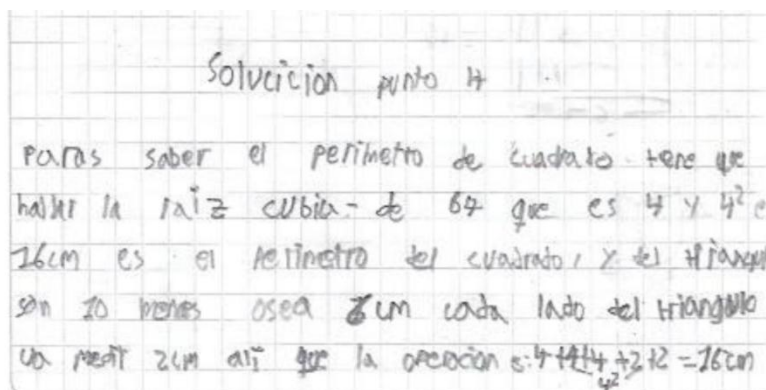 Solucicion punto 4
paras saber el perimetro de cuadrato tene que
hallar la raiz cubica- de 64 que es 4 y 4² e
16cm es el perimetro del cuadrato, y del triangul
son 10 menos osea 6cm cada lado del triangulo
va medir 2cm asi que la operacion es: 4+4+4+2+2=16cm
4²